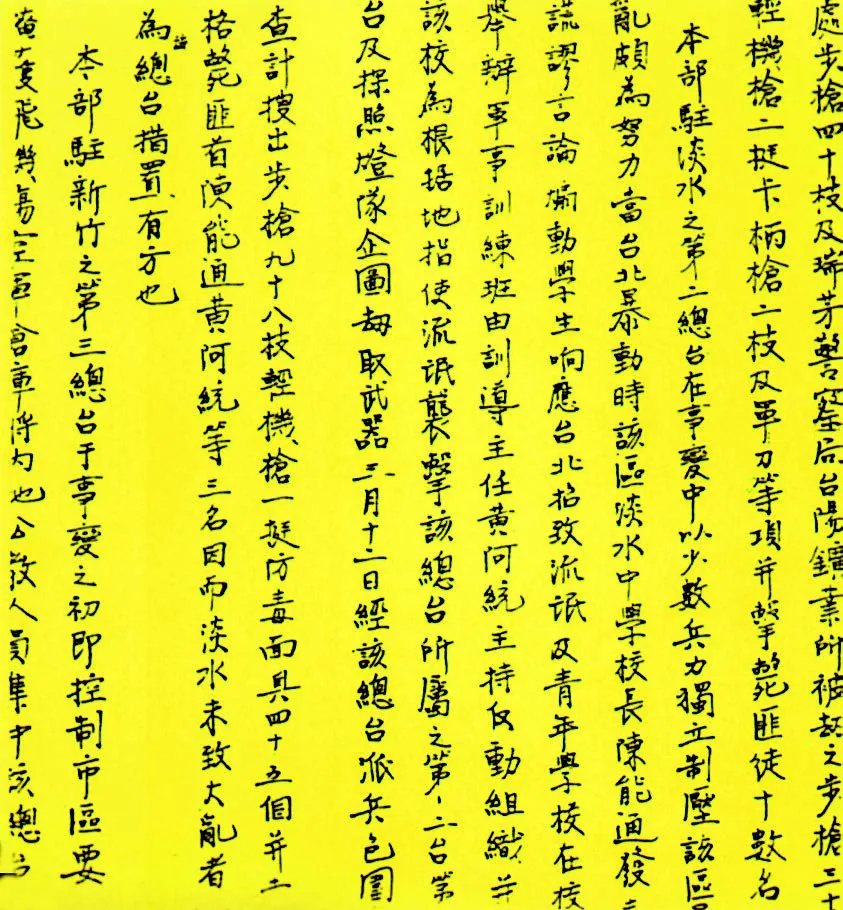 處步槍四十枝及瑞芳警察局台陽鑛業所被刼之步槍三十
輕機槍二挺卡柄槍二枝及單刀等項并擊斃匪徒十數名
本部駐淡水之第二總台在事變中以少數兵力獨立制壓該區
亂頗為努力當台北暴動時該區淡水中學校長陳能通發
謊謬言論煽動學生响應台北招致流氓及青年學校在校
舉辦軍事訓練班由訓導主任黄阿統主持反動組織并
該校為根据地指使流氓襲擊該總台所屬之第一二台第
台及探照燈隊企圖刼取武器三月十二日經該總台派兵包圍
查計搜出步槍九十八枝輕機槍一挺防毒面具四十五個并土
格斃匪首陳能通黄阿統等三名因而淡水未致大亂者
為該總台措置有方也
本部駐新竹之第三總台于事變之初即控制市區要
空軍倉庫 也公教人員集中該總台